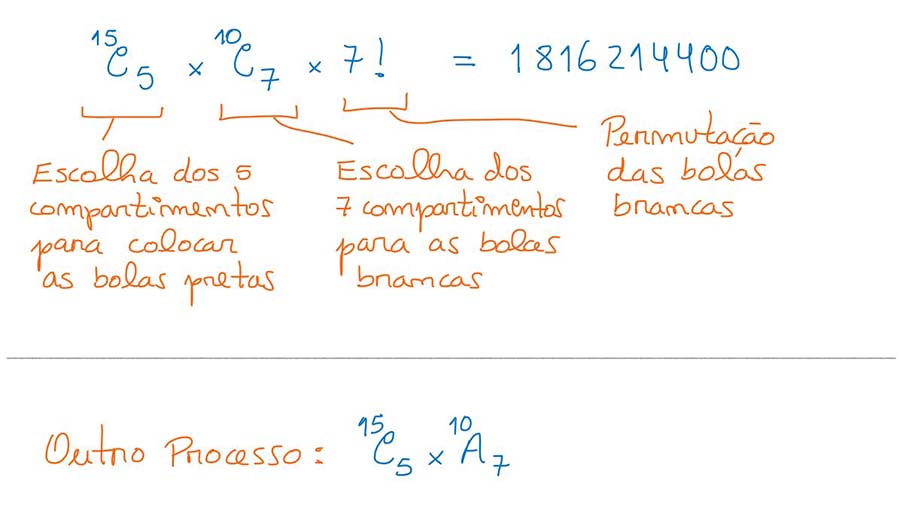 ¹⁵C₅ × ¹⁰C₇ × 7! = 1816214400
Escolha dos 5
compartimentos
para colocar
as bolas pretas
Escolha dos
7 compartimentos
para as bolas
brancas
Permutação
das bolas
brancas
Outro Processo: ¹⁵C₅ × ¹⁰A₇